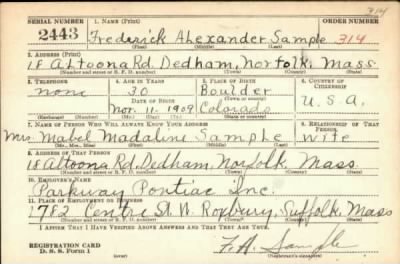 314
SERIAL NUMBER 1. NAME (Print) ORDER NUMBER
2443 Frederick Alexander Sample 314
(First) (Middle) (Last)
2. ADDRESS (Print)
18 Altoona Rd. Dedham, Norfolk, Mass.
(Number and street or R. F. D. number) (Town) (County) (State)
3. TELEPHONE 4. AGE IN YEARS 5. PLACE OF BIRTH 6. COUNTRY OF CITIZENSHIP
none 30 Boulder
DATE OF BIRTH (Town or county)
Nov. 11. 1909 Colorado U.S.A.
(Exchange) (Number) (Mo.) (Day) (Yr.) (State or country)
7. NAME OF PERSON WHO WILL ALWAYS KNOW YOUR ADDRESS 8. RELATIONSHIP OF THAT PERSON
Mrs Mabel Madaline Sample Wife
(Mr., Mrs., Miss) (First) (Middle) (Last)
9. ADDRESS OF THAT PERSON
18 Altoona Rd, Dedham, Norfolk Mass.
(Number and street or R. F. D. number) (Town) (County) (State)
10. EMPLOYER'S NAME
Parkway Pontiac Inc.
11. PLACE OF EMPLOYMENT OR BUSINESS
1782 Centre St. W. Roxbury, Suffolk, Mass
(Number and street or R. F. D. number) (Town) (County) (State)
I AFFIRM THAT I HAVE VERIFIED ABOVE ANSWERS AND THAT THEY ARE TRUE.
F. A. Sample
REGISTRATION CARD
D. S. S. Form 1 (Registrant's signature)